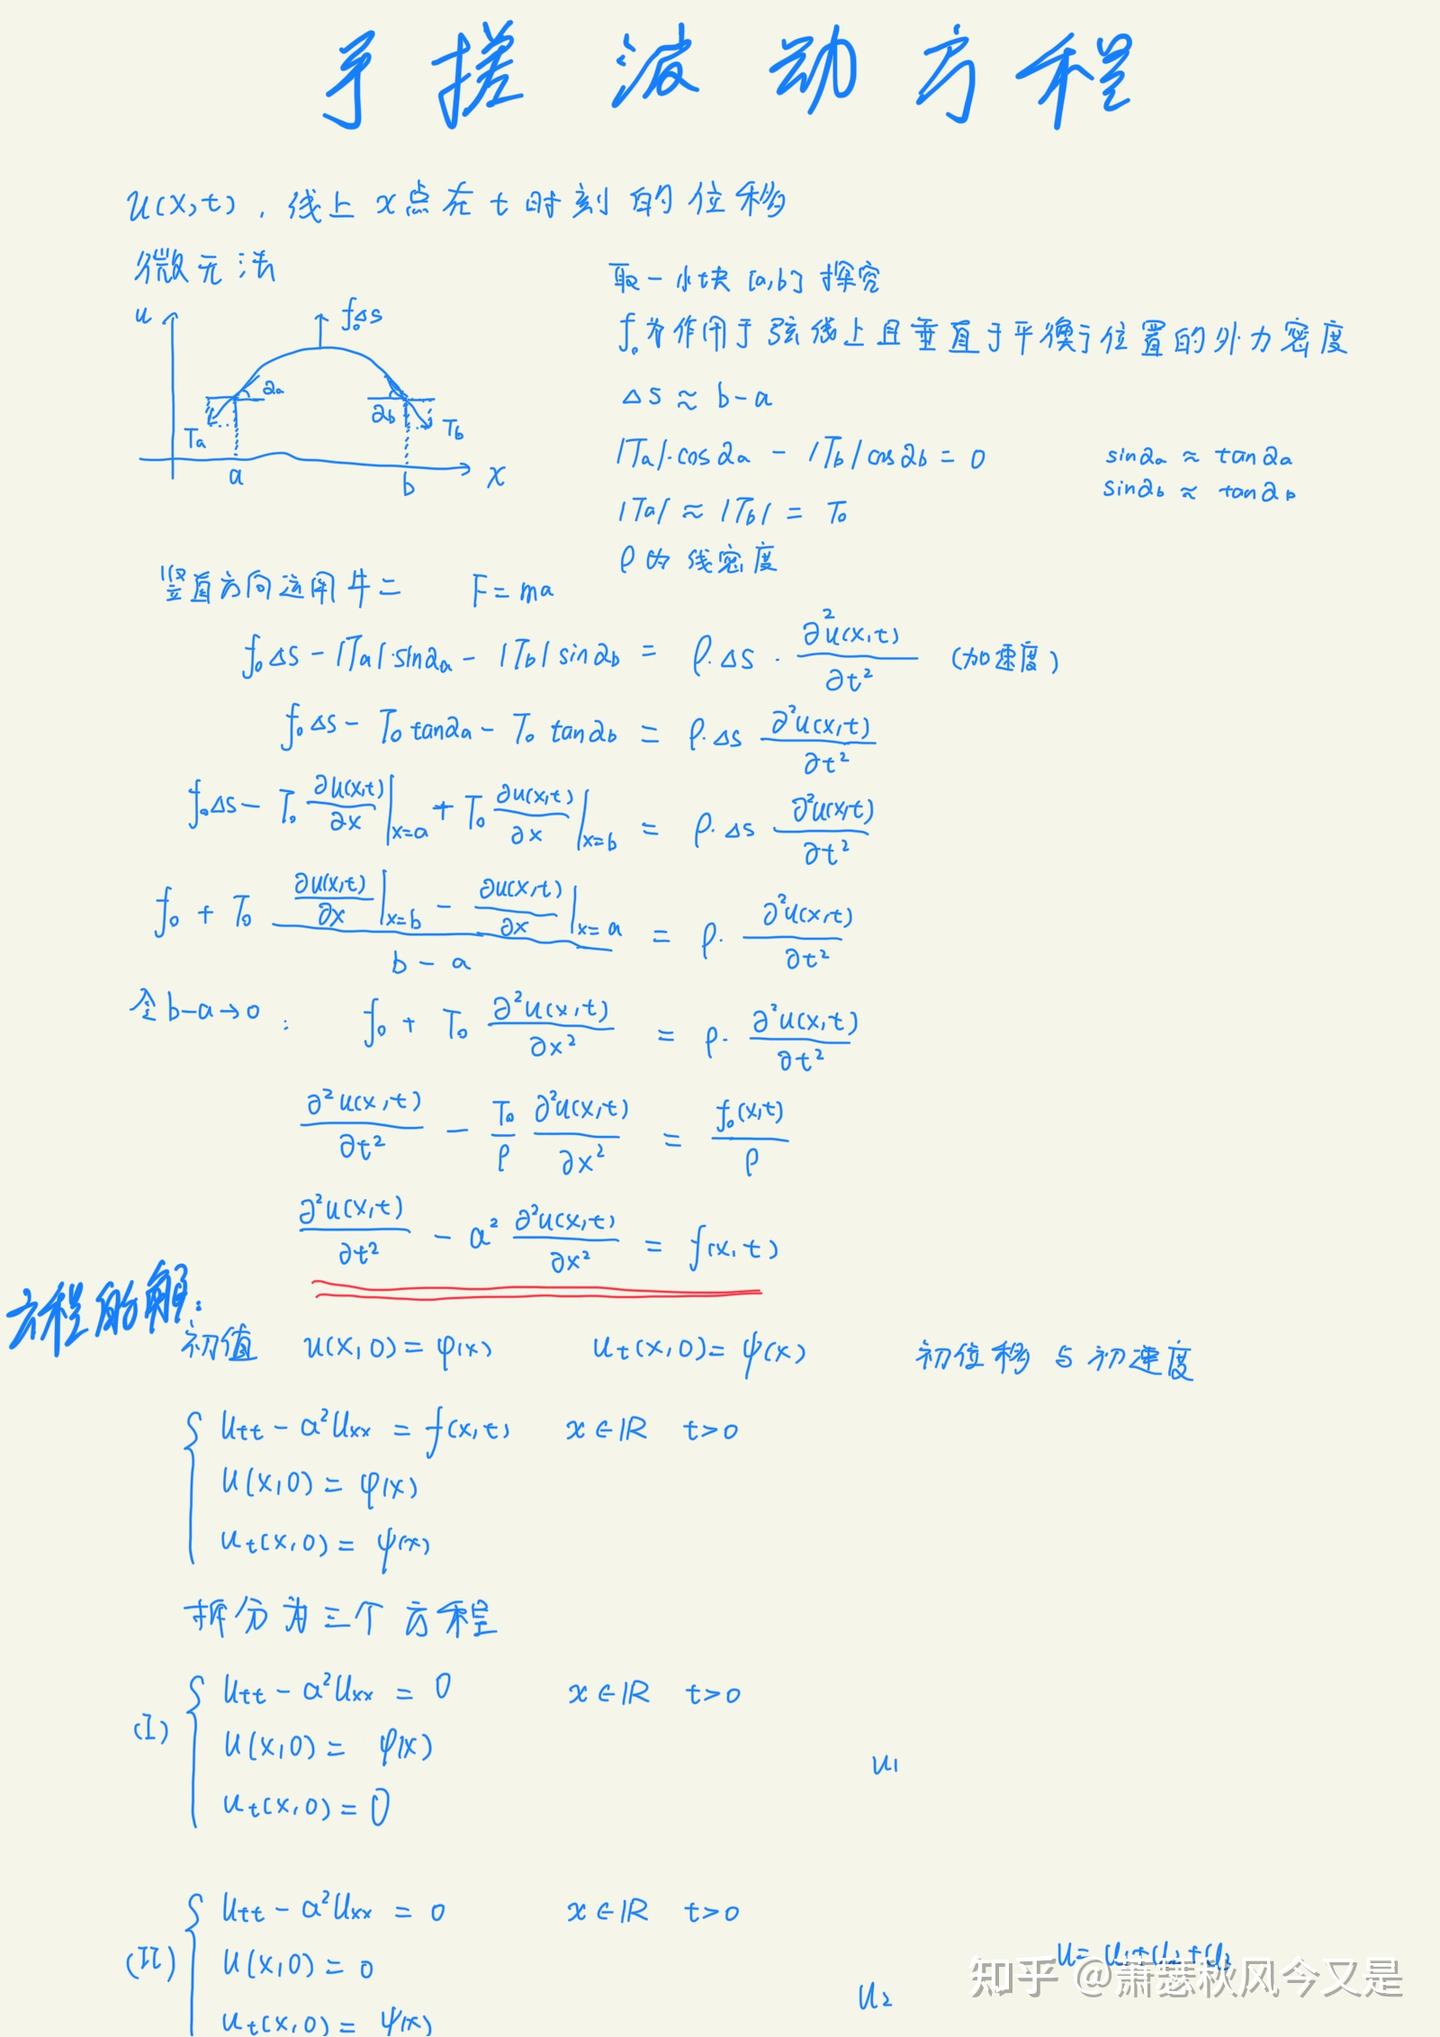 手搓波动方程
u(x,t),线上x点在t时刻的位移
微元法
取一小块[a,b]探究
f₀为作用于弦线上且垂直于平衡位置的外力密度
u f₀Δs
α_a α_b
T_a T_b
a b x
Δs ≈ b-a
|T_a|·cosα_a - |T_b|cosα_b = 0 sinα_a ≈ tanα_a
sinα_b ≈ tanα_b
|T_a| ≈ |T_b| = T₀
ρ为线密度
竖直方向运用牛二 F=ma
f₀Δs - |T_a|·sinα_a - |T_b|sinα_b = ρ·Δs · ∂²u(x,t)/∂t² (加速度)
f₀Δs - T₀tanα_a - T₀tanα_b = ρ·Δs ∂²u(x,t)/∂t²
f₀Δs - T₀ ∂u(x,t)/∂x|x=a + T₀ ∂u(x,t)/∂x|x=b = ρ·Δs ∂²u(x,t)/∂t²
f₀ + T₀ (∂u(x,t)/∂x|x=b - ∂u(x,t)/∂x|x=a)/(b-a) = ρ· ∂²u(x,t)/∂t²
令b-a→0: f₀ + T₀ ∂²u(x,t)/∂x² = ρ· ∂²u(x,t)/∂t²
∂²u(x,t)/∂t² - T₀/ρ ∂²u(x,t)/∂x² = f₀(x,t)/ρ
∂²u(x,t)/∂t² - a² ∂²u(x,t)/∂x² = f(x,t)
方程的解:
初值 u(x,0)=φ(x) u_t(x,0)=ψ(x) 初位移与初速度
{ u_tt - a²u_xx = f(x,t) x∈ℝ t>0
u(x,0) = φ(x)
u_t(x,0) = ψ(x)
拆分为三个方程
(I) { u_tt - a²u_xx = 0 x∈ℝ t>0
u(x,0) = φ(x)
u₁
u_t(x,0) = 0
(II) { u_tt - a²u_xx = 0 x∈ℝ t>0
u(x,0) = 0
u=u₁+u₂+u₃
知乎 @萧瑟秋风今又是
u₂
u_t(x,0) = ψ(x)